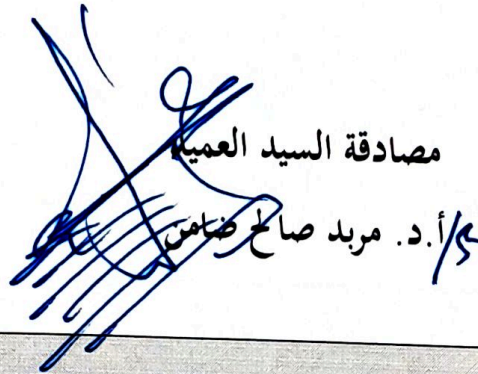 مصادقة السيد العميد
أ.د. مربد صالح ضامن